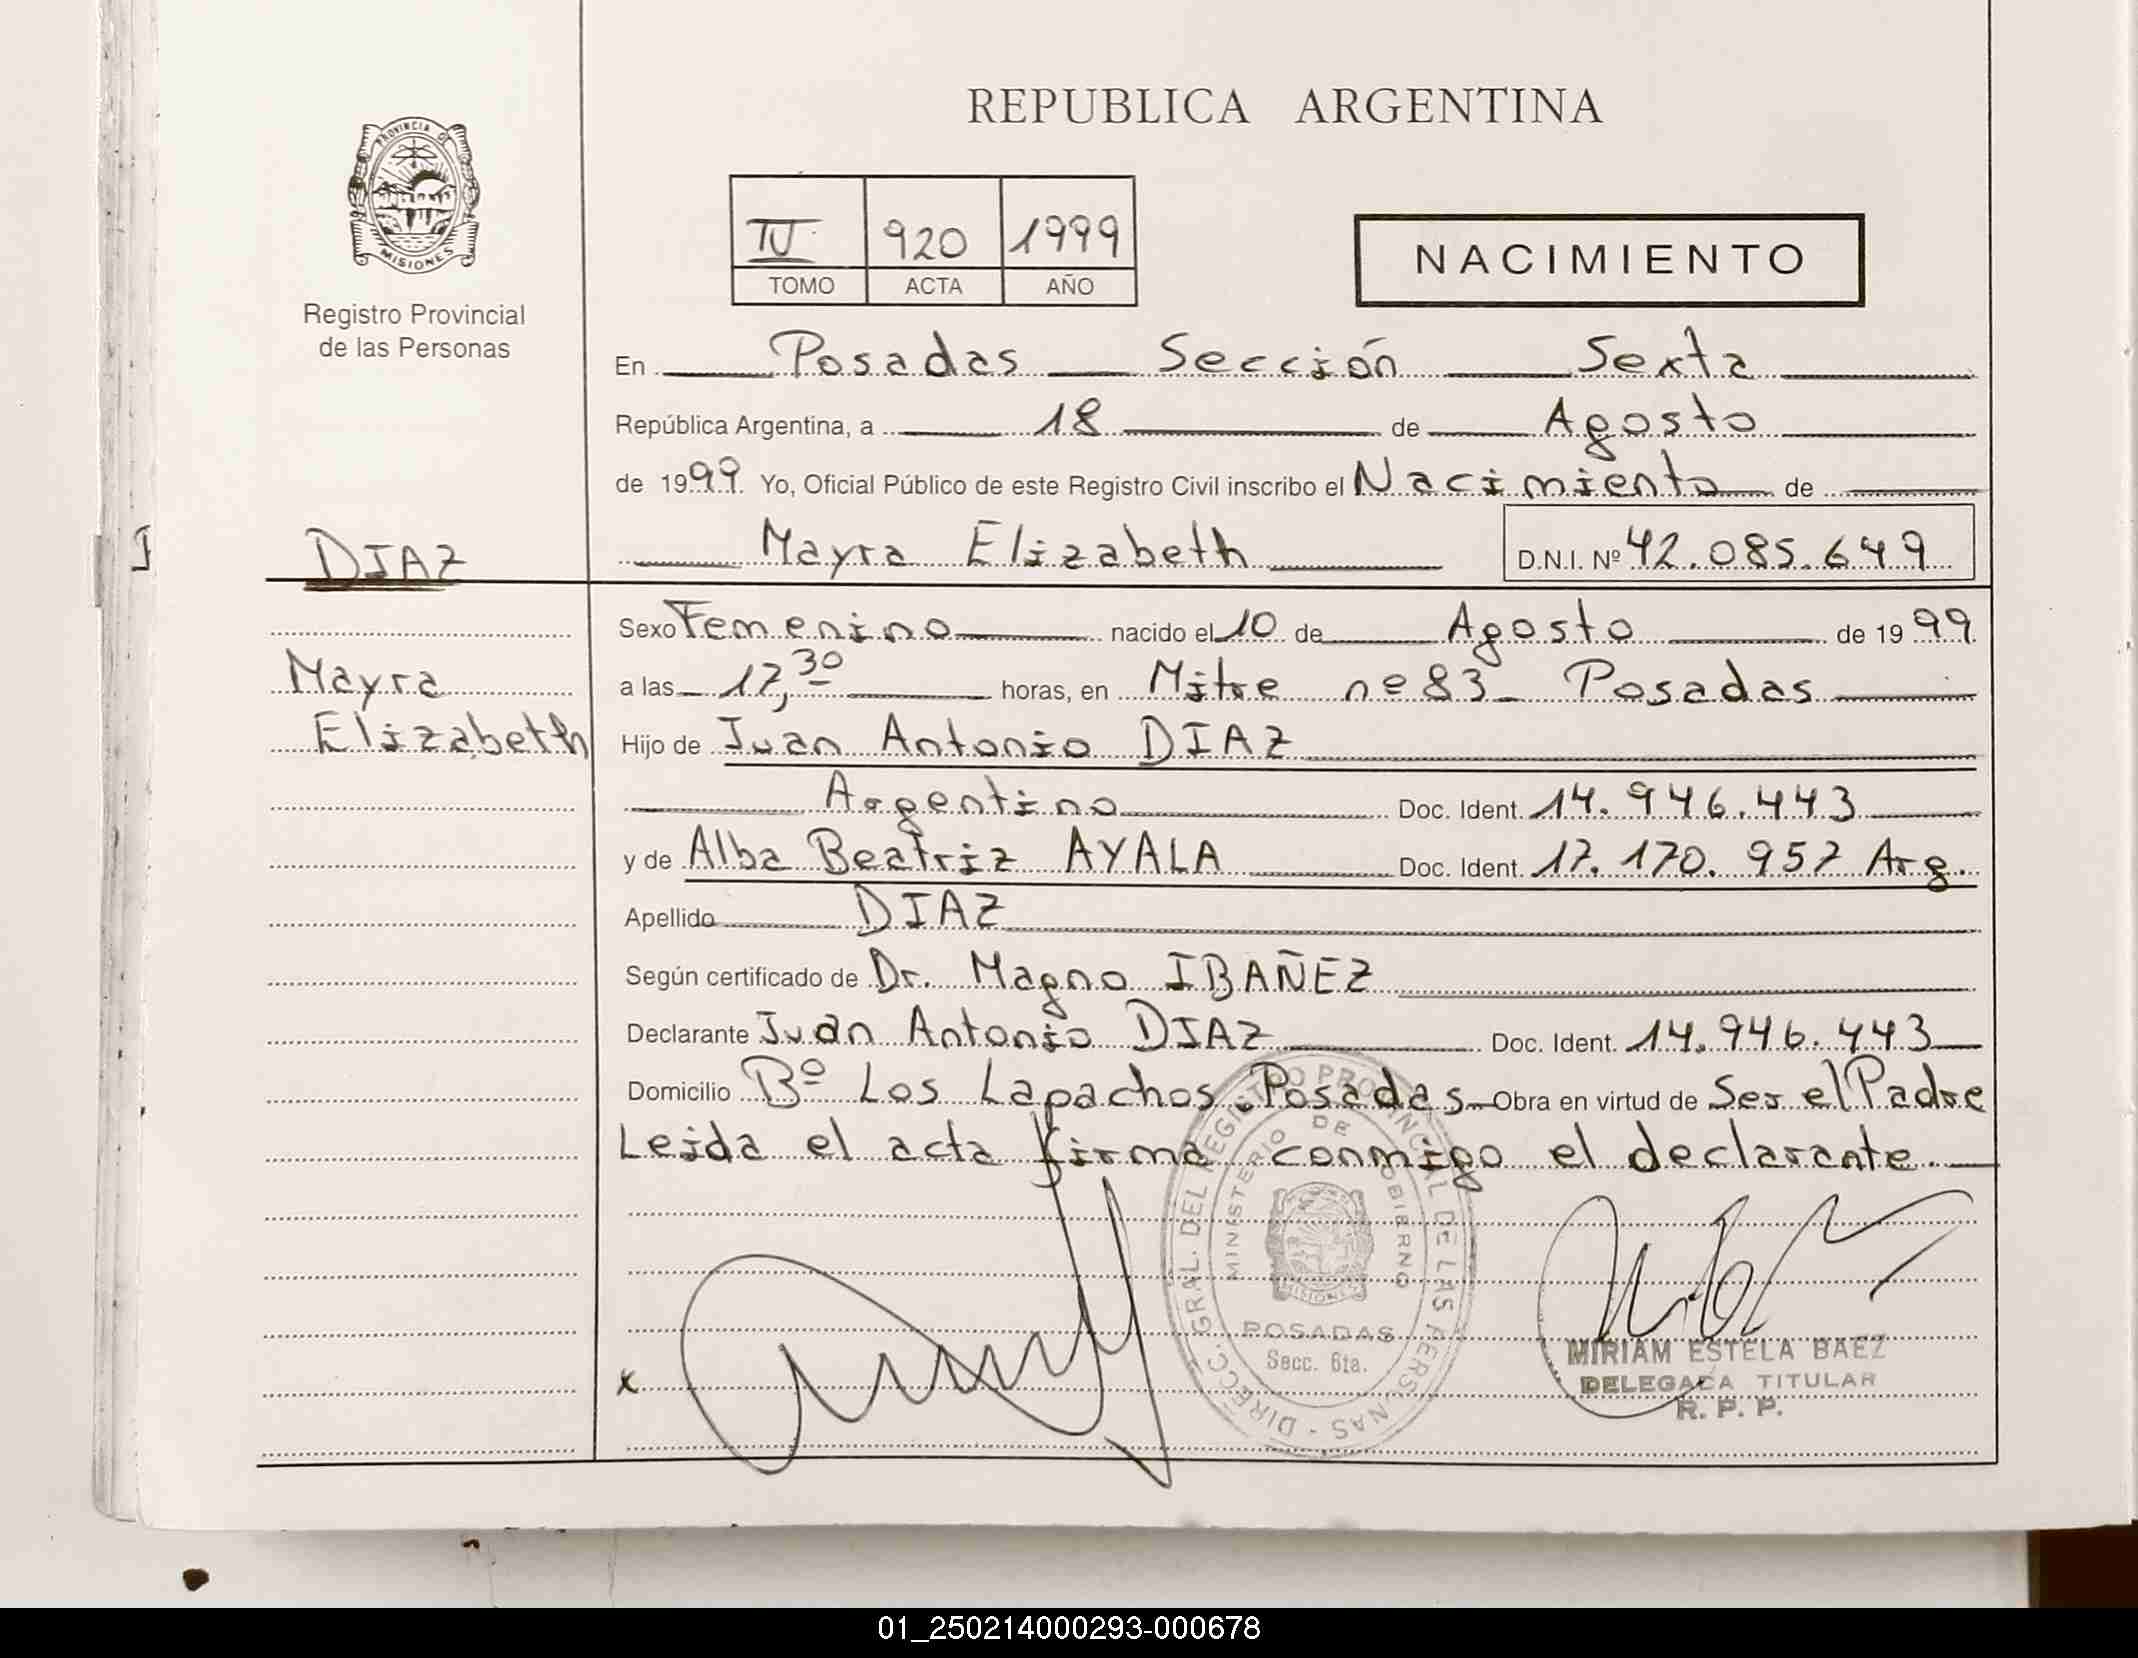 REPUBLICA ARGENTINA
PROVINCIA DE
MISIONES
Registro Provincial
de las Personas
IV 920 1999
TOMO ACTA AÑO
NACIMIENTO
En Posadas Sección Sexta
República Argentina, a 18 de Agosto
de 1999. Yo, Oficial Público de este Registro Civil inscribo el Nacimiento de
DIAZ
Mayra Elizabeth D.N.I. Nº 42.085.649
Sexo Femenino nacido el 10 de Agosto de 1999
Mayra
Elizabeth
a las 17,30 horas, en Mitre nº 83 - Posadas
Hijo de Juan Antonio DIAZ
Argentino Doc. Ident. 14.946.443
y de Alba Beatriz AYALA Doc. Ident. 17.170.957 Arg.
Apellido DIAZ
Según certificado de Dr. Magno IBAÑEZ
Declarante Juan Antonio DIAZ Doc. Ident. 14.946.443
Domicilio Bº Los Lapachos. Posadas - Obra en virtud de Ser el Padre
Leida el acta firma conmigo el declarante.
DIRECC. GRAL. DEL REGISTRO PROVINCIAL DE LAS PERSONAS
MINISTERIO DE GOBIERNO
MISIONES
POSADAS
Secc. 6ta.
x
MIRIAM ESTELA BAEZ
DELEGADA TITULAR
R. P. P.
01_250214000293-000678